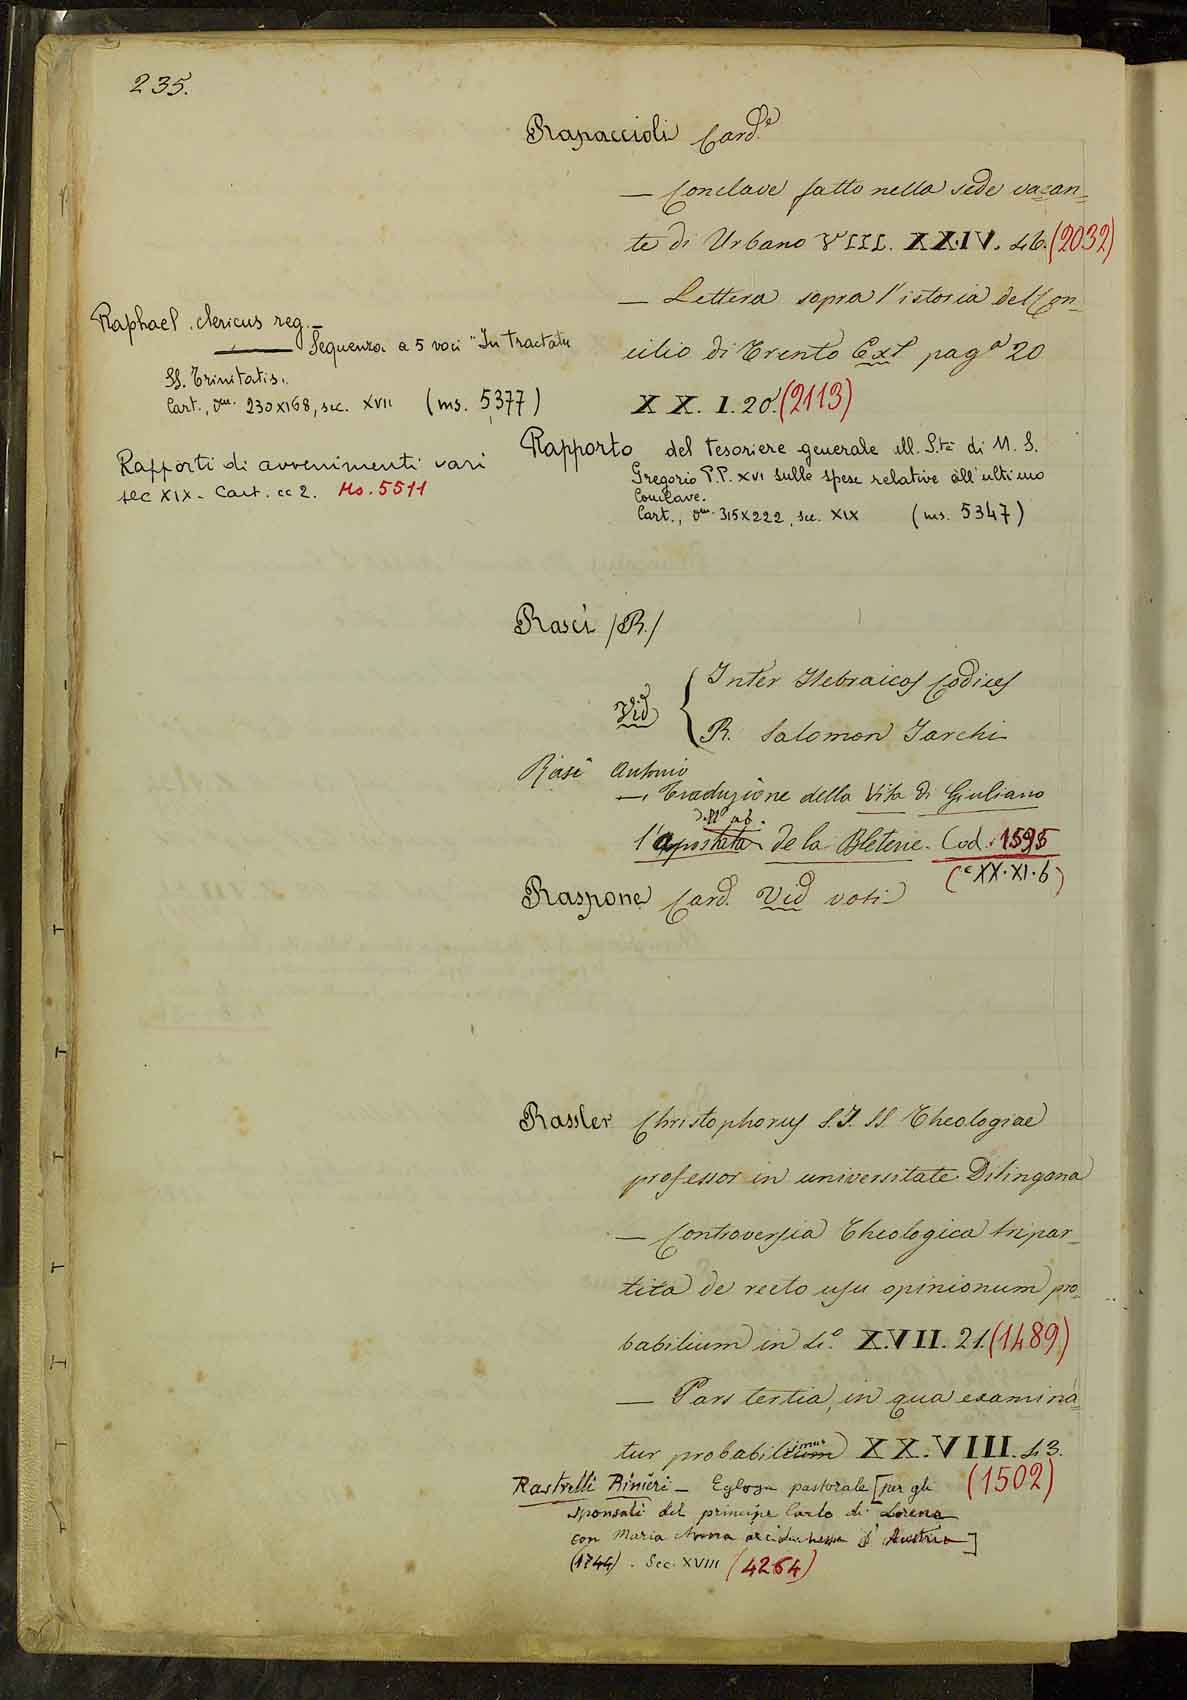 235.
Rapaccioli Card.e
— Conclave fatto nella sede vacan=
te di Urbano VIII. XX.IV. 46. (2032)
— Lettera sopra l'istoria del Con=
cilio di Trento Ext pag.a 20
XX.I.20. (2113)
Raphael clericus reg.—
Sequenza a 5 voci "In tractatu
SS. Trinitatis.
Cart., 230x168, sec. XVII (ms. 5377)
Rapporti di avvenimenti vari
sec XIX - Cart. cc 2. Ms. 5511
Rapporto del tesoriere generale alla S.tà di N. S.
Gregorio P.P. XVI sulle spese relative all'ultimo
Conclave.
Cart., 315x222, sec. XIX (ms. 5347)
Rasci /R./
Vid { Inter Hebraicos Codices
R. Salomon Jarchi
Rasi Antonio
— Traduzione della Vita di Giuliano
dell'ab.
l'apostata de la Bleterie. Cod. 1595
(XX.XI.6)
Raspone Card. Vid voti
Rassler Christophorus S.J. SS. Theologiae
professor in universitate Dilingana
— Controversia Theologica tripar=
tita de recto usu opinionum pro=
babilium in 4.o XVII. 21. (1489)
— Pars tertia, in qua examina=
tur probabilium XX.VIII. 43.
(1502)
Rastrelli Rinieri — Egloga pastorale [per gli
sponsali del principe Carlo di Lorena
con Maria Anna arciduchessa d'Austria]
(1744). Sec. XVIII (4264)